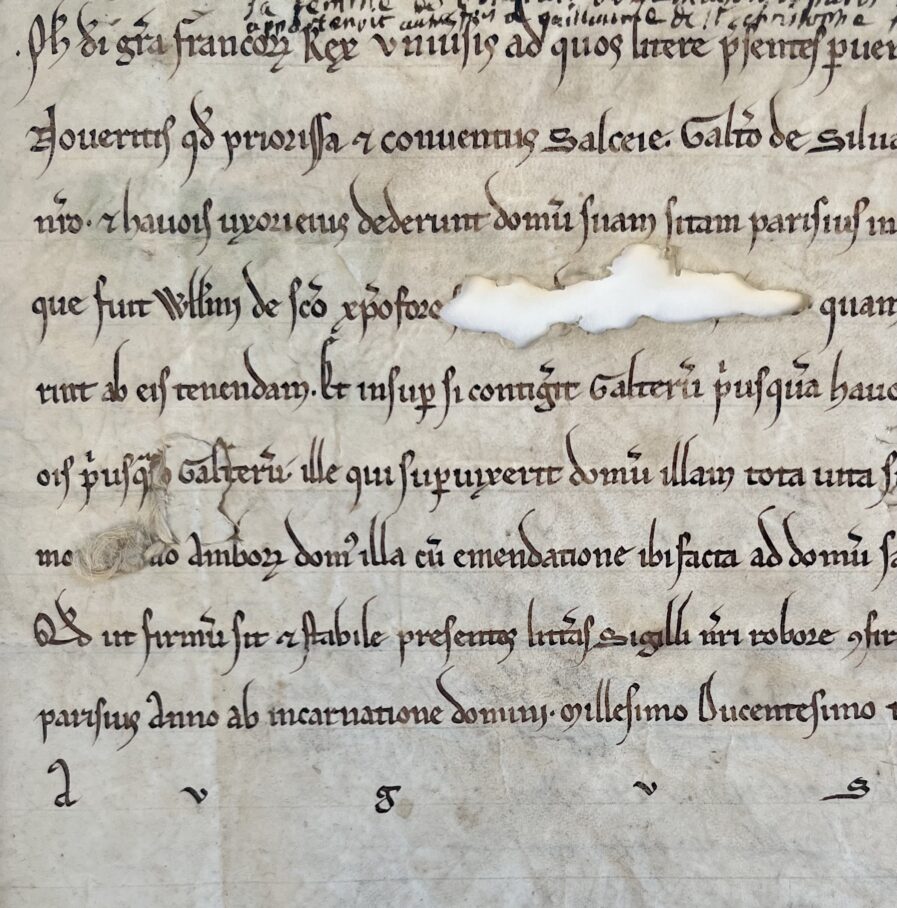 appartenoit de guillaume de st christophe
Ph di gra francorꝝ Rex vniuersis ad quos littere psentes puen
Noueritis qd priorissa ⁊ conuentus Salceie. Galto de Silua
nro. ⁊ hauois uxori eius dederunt domū suam sitam parisius in
que fuit Willmi de sco xpofore quam
runt ab eis tenendam. Et insup si contigit Galterū pusqua hauo
ois pusq Galterū. ille qui supuixerit domū illam tota uita
mo amborꝝ dom᾽ illa cū emendatione ibi facta ad domū sa
Qd ut firmū sit ⁊ stabile presentes littas Sigilli nri robore ꝯfir
parisius Anno ab incarnatione domini. Millesimo Ducentesimo
A v g v s